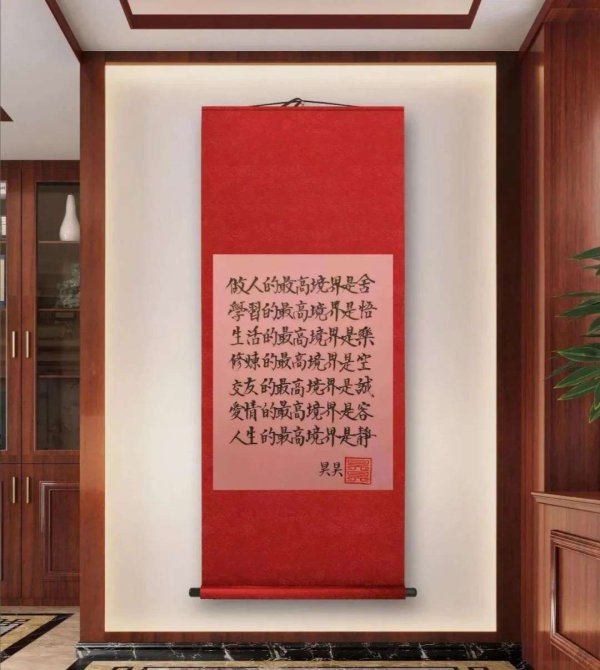 做人的最高境界是舍
學習的最高境界是悟
生活的最高境界是樂
修煉的最高境界是空
交友的最高境界是誠
愛情的最高境界是容
人生的最高境界是靜
昊昊